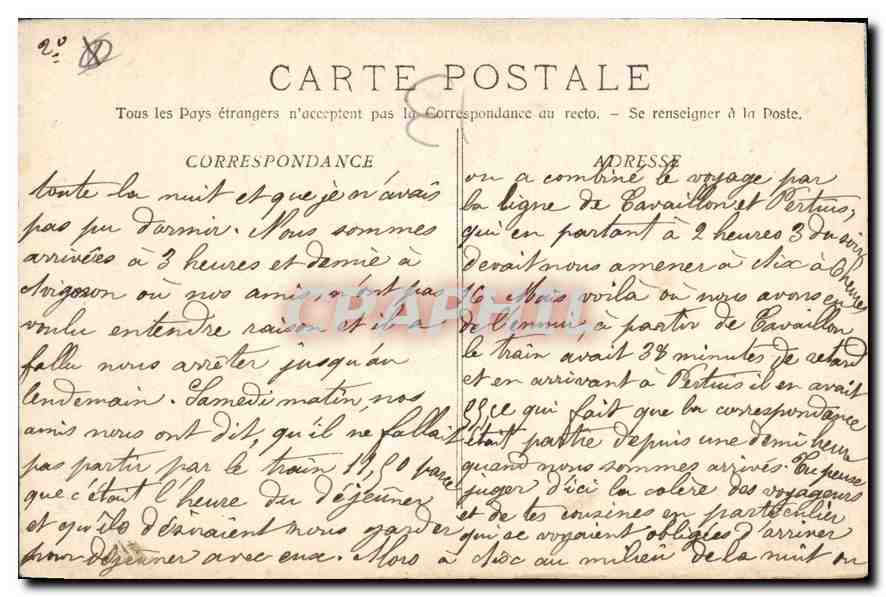 2º
CARTE POSTALE
Tous les Pays étrangers n'acceptent pas la Correspondance au recto. - Se renseigner à la Poste.
CORRESPONDANCE
toute la nuit et que je n'avais
pas pu dormir. Nous sommes
arrivées à 3 heures et demie à
Avignon où nos amis n'ont pas
voulu entendre raison et il a
fallu nous arrêter jusqu'au
lendemain. Samedi matin, nos
amis nous ont dit, qu'il ne fallait
pas partir par le train 11,50 parce
que c'était l'heure du déjeûner
et qu'ils désiraient nous garder
pour déjeûner avec eux. Alors
ADRESSE
on a combiné le voyage par
la ligne de Cavaillon et Pertuis,
qui en partant à 2 heures 3 du soir
devait nous amener à Aix à 6 heures
16. Mais voilà où nous avons eu
de l'ennui, à partir de Cavaillon
le train avait 38 minutes de retard
et en arrivant à Pertuis il en avait
55, ce qui fait que la correspondance
était partie depuis une demi heure
quand nous sommes arrivés. Tu peux
juger d'ici la colère des voyageurs
et de tes cousines en particulier
qui se voyaient obligées d'arriver
à Aix au milieu de la nuit ou
CPAPHIL